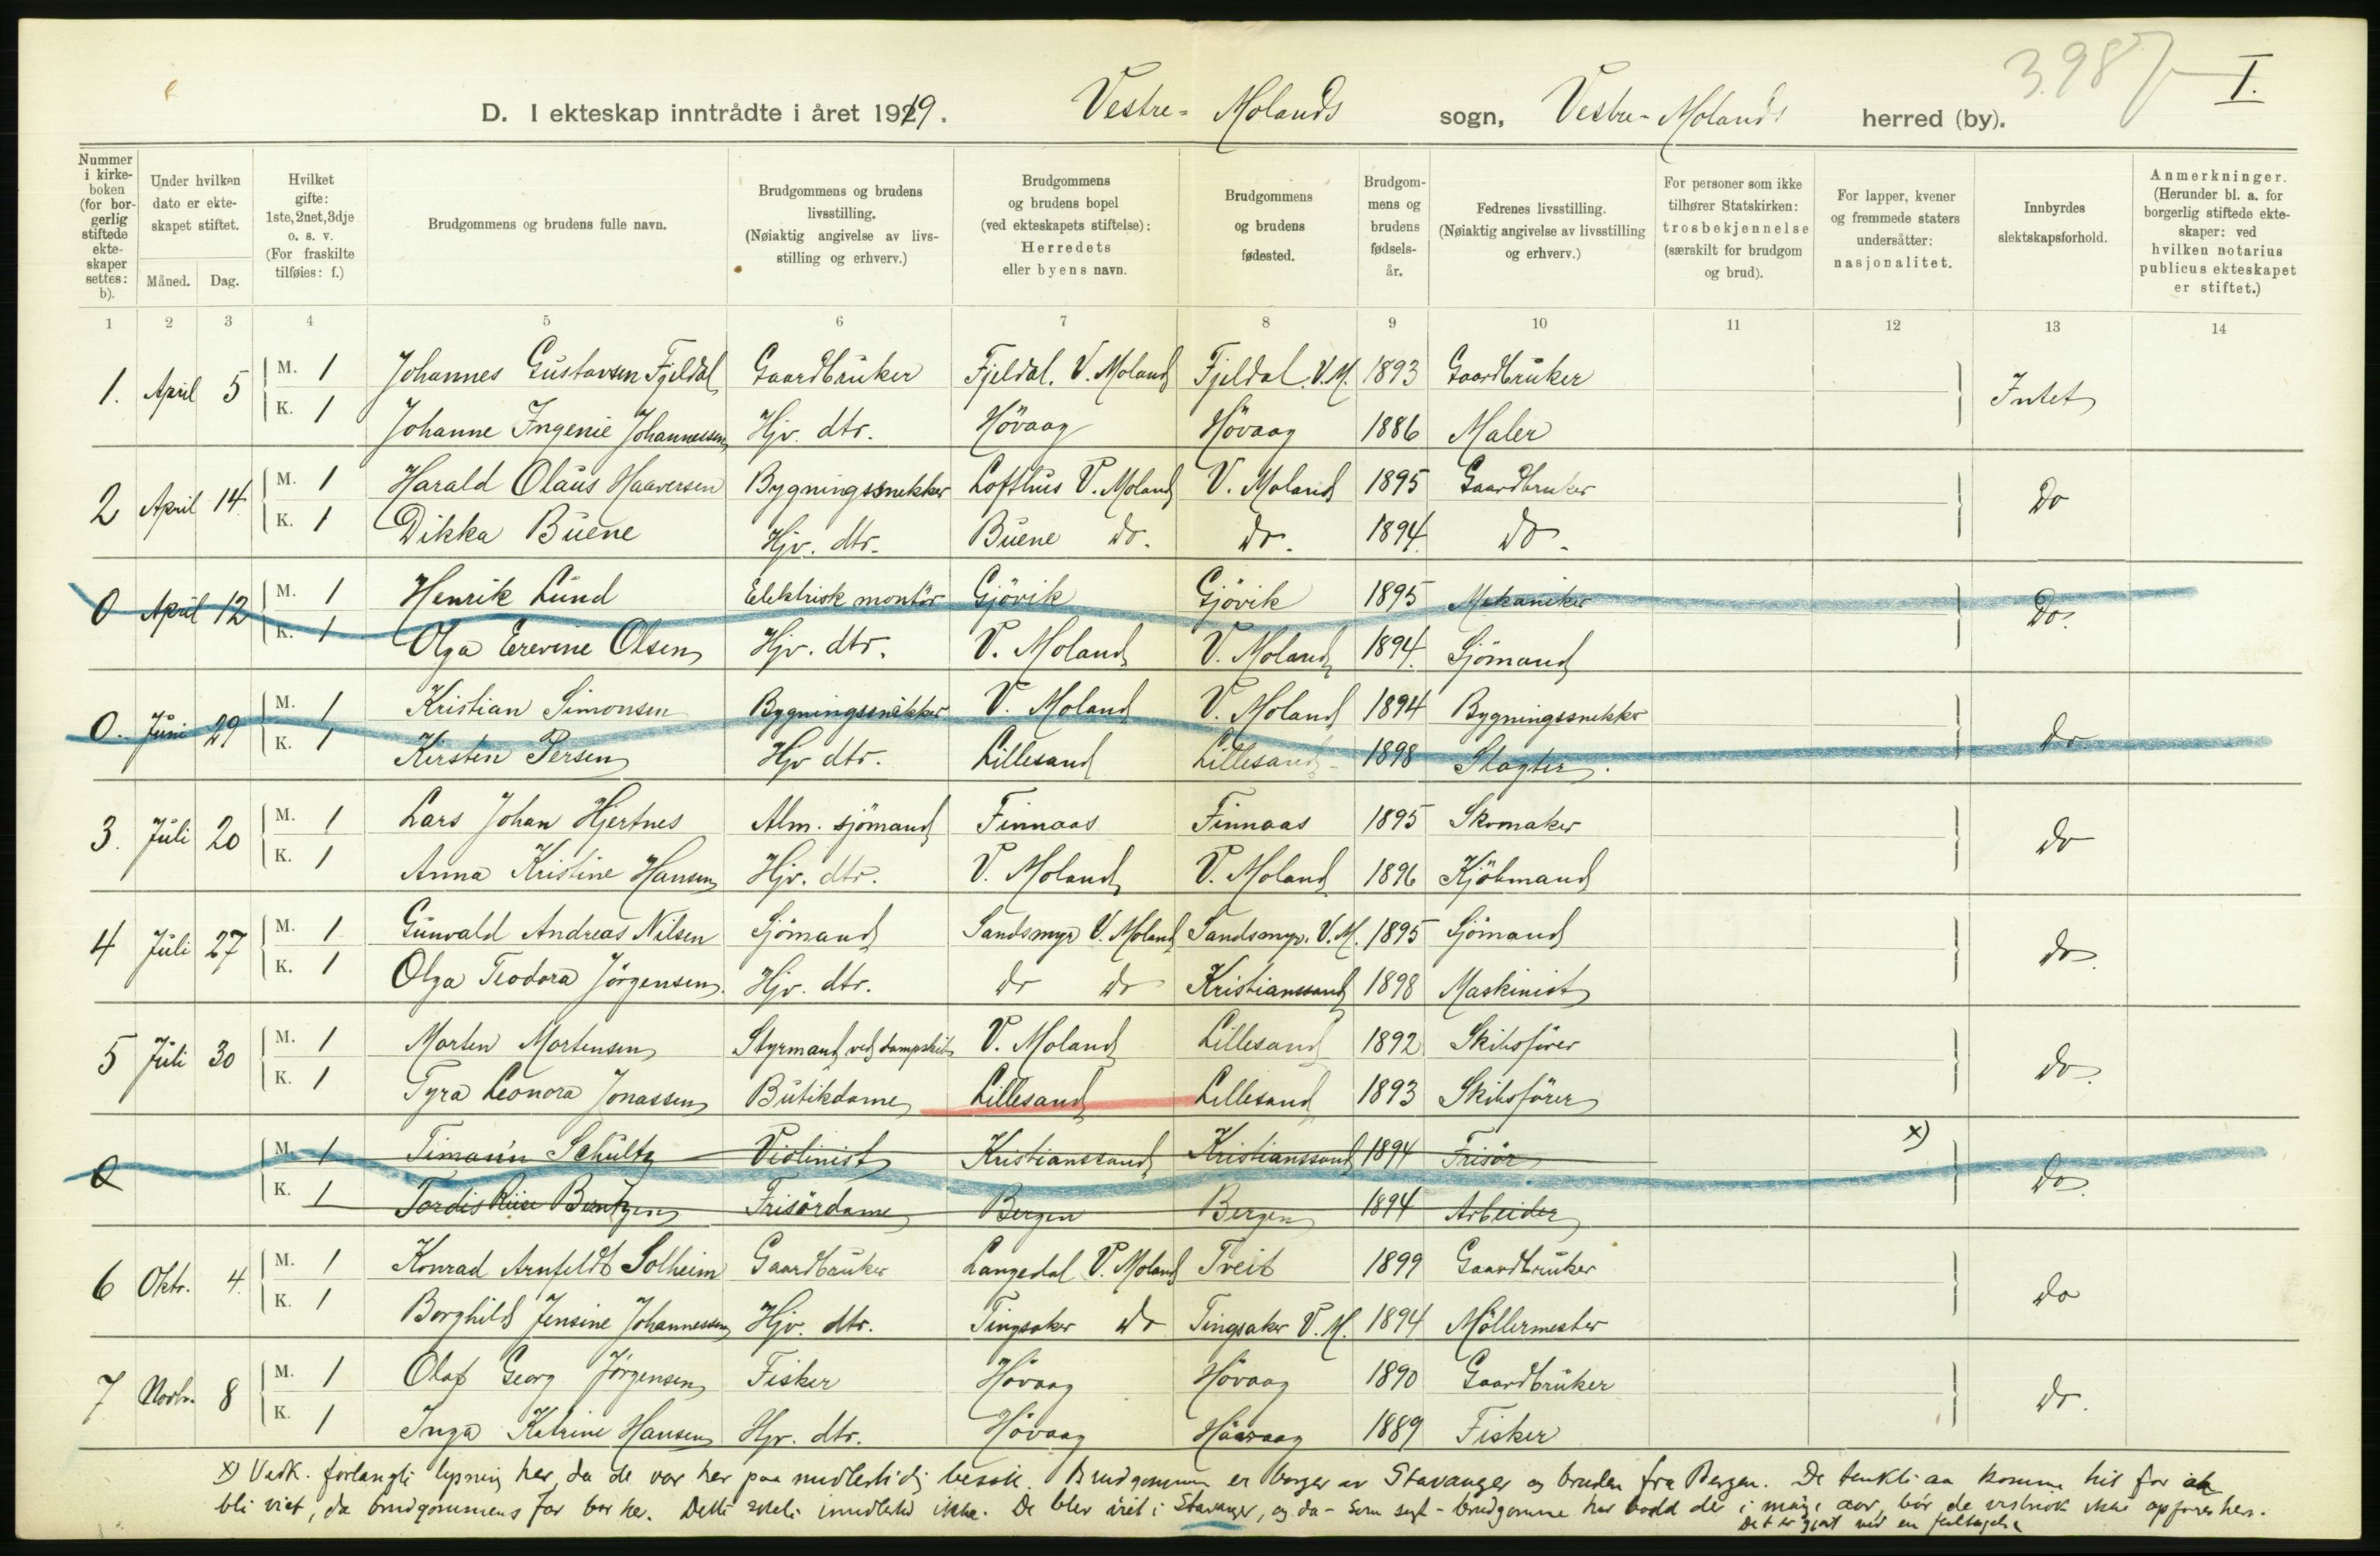 3987 I.
D. I ekteskap inntrådte i året 1919. Vestre-Molands sogn, Vestre-Molands herred (by).
Nummer i kirkeboken (for borgerlig stiftede ekteskaper settes: b).
Under hvilken dato er ekteskapet stiftet.
Måned. Dag.
Hvilket gifte: 1ste, 2net, 3dje o. s. v. (For fraskilte tilføies: f.)
Brudgommens og brudens fulle navn.
Brudgommens og brudens livsstilling. (Nøiaktig angivelse av livsstilling og erhverv.)
Brudgommens og brudens bopel (ved ekteskapets stiftelse): Herredets eller byens navn.
Brudgommens og brudens fødested.
Brudgommens og brudens fødselsår.
Fedrenes livsstilling. (Nøiaktig angivelse av livsstilling og erhverv.)
For personer som ikke tilhører Statskirken: trosbekjennelse (særskilt for brudgom og brud).
For lapper, kvener og fremmede staters undersåtter: nasjonalitet.
Innbyrdes slektskapsforhold.
Anmerkninger. (Herunder bl. a. for borgerlig stiftede ekteskaper: ved hvilken notarius publicus ekteskapet er stiftet.)
1 2 3 4 5 6 7 8 9 10 11 12 13 14
1. April 5 M. 1 Johannes Gustavsen Fjeldal Gaardbruker Fjeldal. V. Moland Fjeldal. V.M. 1893 Gaardbruker Intet
K. 1 Johanne Ingenie Johannessen Hjv. dtr. Hövaag Hövaag 1886 Maler
2 April 14 M. 1 Harald Olaus Haaversen Bygningssnekker Lofthus V. Moland V. Moland 1895 Gaardbruker Do
K. 1 Dikka Buene Hjv. dtr. Buene do. do. 1894 do.
0 April 12 M. 1 Henrik Lund Elektrisk montör Gjövik Gjövik 1895 Mekaniker Do.
K. 1 Olga Erevine Olsen Hjv. dtr. V. Moland V. Moland 1894 Sjömand
0. Juni 29 M. 1 Kristian Simonsen Bygningssnekker V. Moland V. Moland 1894 Bygningssnekker do
K. 1 Kirsten Persen Hjv dtr. Lillesand Lillesand 1898 Slagter.
3. Juli 20 M. 1 Lars Johan Hjertnes Alm. sjömand Finnaas Finnaas 1895 Skomaker do
K. 1 Anna Kristine Hansen Hjv. dtr. V. Moland V. Moland 1896 Kjöbmand
4 Juli 27 M. 1 Gunvald Andreas Nilsen Sjömand Sandsmyr V. Moland Sandsmyr. V.M. 1895 Sjömand do.
K. 1 Olga Teodora Jörgensen. Hjv. dtr. do do Kristianssand 1898 Maskinist
5 Juli 30 M. 1 Morten Mortensen Styrmand ved dampskib V. Moland Lillesand 1892 Skibsförer do.
K. 1 Tyra Leonora Jonassen Butikdame Lillesand Lillesand 1893 Skibsförer
0 M. 1 Timann Schultz Violinist Kristianssand Kristianssand 1894 Frisör x) Do.
K. 1 Tordis Riise Berntzen Frisördame Bergen Bergen 1894 Arbeider
6 Oktr. 4. M. 1 Konrad Arnfeldt Solheim Gaardbruker Langedal V. Moland Tveit 1899 Gaardbruker do
K. 1 Borghild Jensine Johannessen Hjv. dtr. Tingsaker do Tingsaker V. M. 1894 Möllermester
7 Novbr. 8 M. 1 Olaf Georg Jörgensen Fisker Hövaag Hövaag 1890 Gaardbruker do.
K. 1 Inga Katrine Hansen Hjv. dtr. Hövaag Höavaag 1889 Fisker
x) Vedk. forlangte lysning her, da de var her paa midlertidig besök. Brudgommen er borger av Stavanger og bruden fra Bergen. De tenkte aa komme hit for at
bli viet, da brudgommens far bor her. Dette skete imidlertid ikke. De blev viet i Stavanger, og da - som sagt - brudgomme har bodd der i mange aar, bör de vistnok ikke opföres her.
Det er gjort ved en feiltagelse